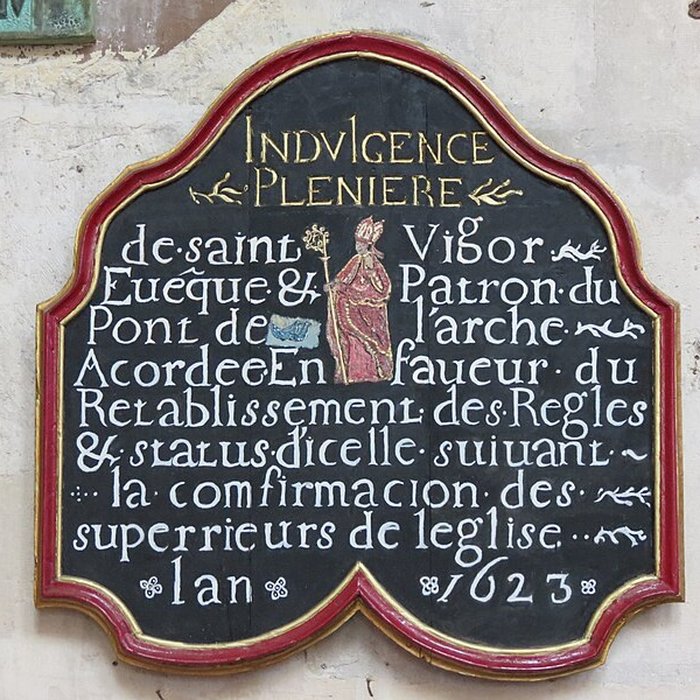 INDVLGENCE
PLENIERE
de·saint Vigor
Euêque·& Patron·du
Pont de l'arche
Acordee En faueur·du
Retablissement·des·Regles
& status·d'icelle·suiuant·~
la·comfirmacion·des·
superrieurs de leglise··
lan 1623